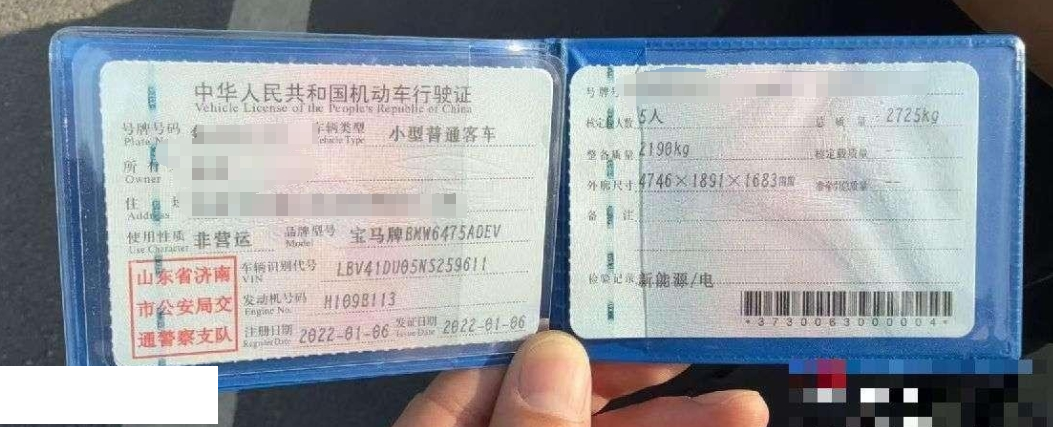 中华人民共和国机动车行驶证
Vehicle License of the People's Republic of China
号牌号码 车辆类型 小型普通客车
Plate N Vehicle Type
所
Owner
住
Address
使用性质 非营运 品牌型号 宝马牌BMW6475ADEV
Use Character Model
车辆识别代号 LBV41DU05NS259611
VIN
发动机号码 H109B113
Engine No.
注册日期 2022-01-06 发证日期 2022-01-06
Register Date Issue Date
山东省济南
市公安局交
通警察支队
号牌号
核定载人数 5人 总质量 2725kg
整备质量 2190kg 核定载质量 --
外廓尺寸 4746×1891×1683mm 准牵引总质量 --
备注
检验记录 新能源/电
*3730063000004*